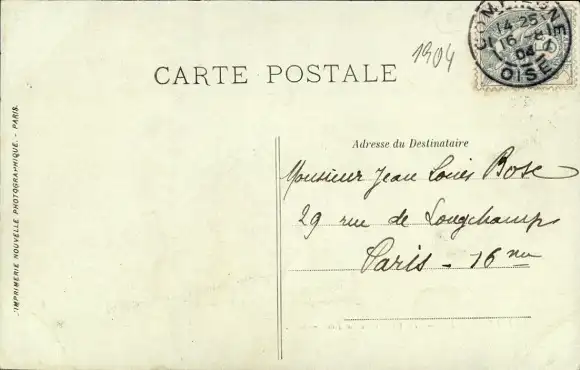 1904
COMPIEGNE
14-25
16
04
OISE
CARTE POSTALE
Adresse du Destinataire
Monsieur Jean Louis Bose
29 rue de Longchamps
Paris - 16me
IMPRIMERIE NOUVELLE PHOTOGRAPHIQUE. - PARIS.